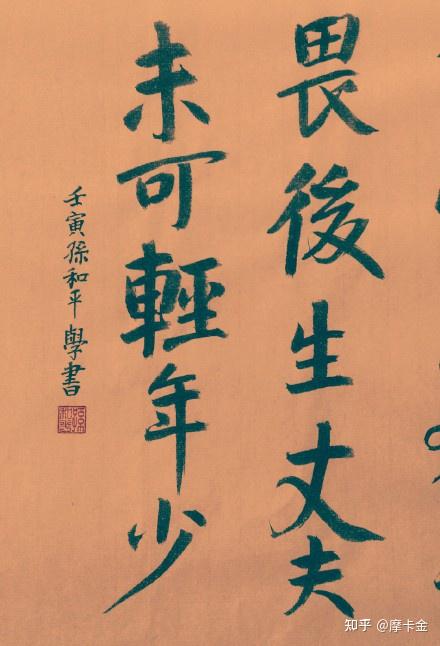 畏後生丈夫
未可輕年少
壬寅孫和平學書
知乎 @摩卡金